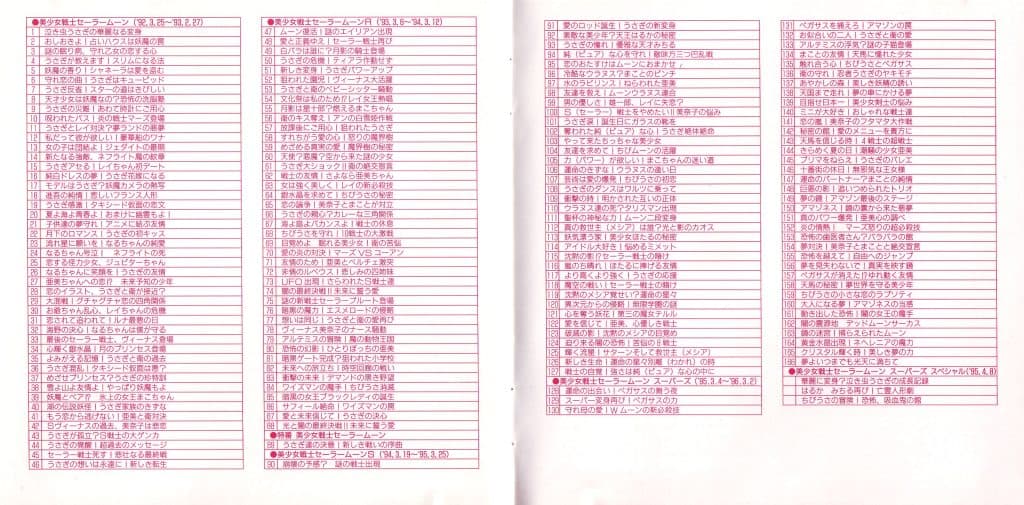 ●美少女戦士セーラームーン ('92,3,25～'93,2,27)
1 泣き虫うさぎの華麗なる変身
2 おしおきよ!占いハウスは妖魔の館
3 謎の眠り病、守れ乙女の恋する心
4 うさぎが教えます!スリムになる法
5 妖魔の香り!シャネーラは愛を盗む
6 守れ恋の曲!うさぎはキューピッド
7 うさぎ反省!スターの道はきびしい
8 天才少女は妖魔なの?恐怖の洗脳塾
9 うさぎの災難!あわて時計にご用心
10 呪われたバス!炎の戦士マーズ登場
11 うさぎとレイ対決?夢ランドの悪夢
12 私だって彼が欲しい!豪華船のワナ
13 女の子は団結よ!ジェダイトの最期
14 新たなる強敵、ネフライト魔の紋章
15 うさぎアセる!レイちゃん初デート
16 純白ドレスの夢!うさぎ花嫁になる
17 モデルはうさぎ?妖魔カメラの熱写
18 進吾の純情!悲しいフランス人形
19 うさぎ感激!タキシード仮面の恋文
20 夏よ海よ青春よ!おまけに幽霊もよ!
21 子供達の夢守れ!アニメに結ぶ友情
22 月下のロマンス!うさぎの初キッス
23 流れ星に願いを!なるちゃんの純愛
24 なるちゃん号泣! ネフライトの死
25 恋する怪力少女、ジュピターちゃん
26 なるちゃんに笑顔を!うさぎの友情
27 亜美ちゃんへの恋!? 未来予知の少年
28 恋のイラスト、うさぎと衛が接近?
29 大混戦!グチャグチャ恋の四角関係
30 お爺ちゃん乱心、レイちゃんの危機
31 恋されて追われて!ルナ最悪の日
32 海野の決心!なるちゃんは僕が守る
33 最後のセーラー戦士、ヴィーナス登場
34 心輝く銀水晶!月のプリンセス登場
35 よみがえる記憶!うさぎと衛の過去
36 うさぎ混乱!タキシード仮面は悪?
37 めざせプリンセス?うさぎの珍特訓
38 雪よ山よ友情よ!やっぱり妖魔もよ
39 妖魔とペア!? 氷上の女王まこちゃん
40 湖の伝説妖怪!うさぎ家族のきずな
41 もう恋から逃げない!亜美と衛対決
42 Sヴィーナスの過去、美奈子は悲恋
43 うさぎが孤立?S戦士の大ゲンカ
44 うさぎの覚醒!超過去のメッセージ
45 セーラー戦士死す!悲壮なる最終戦
46 うさぎの想いは永遠に!新しき転生
●美少女戦士セーラームーンR ('93,3,6～'94,3,12)
47 ムーン復活!謎のエイリアン出現
48 愛と正義ゆえ!セーラー戦士再び
49 白バラは誰に?月影の騎士登場
50 うさぎの危機!ティアラ作動せず
51 新しき変身!うさぎパワーアップ
52 狙われた園児!ヴィーナス大活躍
53 うさぎと衛のベビーシッター騒動
54 文化祭は私のため!?レイ女王熱唱
55 月影は星十郎?燃えるまこちゃん
56 衛のキス奪え!アンの白雪姫作戦
57 放課後にご用心!狙われたうさぎ
58 すれちがう愛の心!怒りの魔界樹
59 めざめる真実の愛!魔界樹の秘密
60 天使?悪魔?空から来た謎の少女
61 うさぎ大ショック!!衛の絶交宣言
62 戦士の友情!さよなら亜美ちゃん
63 女は強く美しく!レイの新必殺技
64 銀水晶を求めて!ちびうさの秘密
65 恋の論争!美奈とまこと対立
66 うさぎの親心?カレーな三角関係
67 海よ島よバカンスよ!戦士の休息
68 ちびうさを守れ!10戦士の大激戦
69 目覚めよ 眠れる美少女!衛の苦悩
70 愛の炎の対決!マーズVSコーアン
71 友情のため!亜美とベルチェ激突
72 非情のルベウス!悲しみの四姉妹
73 UFO出現!さらわれたS戦士達
74 闇の最終決戦!!未来に誓う愛
75 謎の新戦士セーラープルート登場
76 暗黒の魔力!エスメロードの侵略
77 想いは同じ!うさぎと衛の愛再び
78 ヴィーナス美奈子のナース騒動
79 アルテミスの冒険!魔の動物王国
80 恐怖の幻影!ひとりぼっちの亜美
81 暗黒ゲート完成?狙われた小学校
82 未来への旅立ち!時空回廊の戦い
83 衝撃の未来!デマンドの黒き野望
84 ワイズマンの魔手!ちびうさ消滅
85 暗黒の女王ブラックレディの誕生
86 サフィール絶命!ワイズマンの罠
87 愛と未来信じて!うさぎの決心
88 光と闇の最終決戦!!未来に誓う愛
●特番 美少女戦士セーラームーン
89 うさぎ達の決意!新しき戦いの序曲
●美少女戦士セーラームーンS ('94,3,19～'95,3,25)
90 崩壊の予感? 謎の戦士出現
91 愛のロッド誕生!うさぎの新変身
92 素敵な美少年?天王はるかの秘密
93 うさぎの憧れ!優雅な天才みちる
94 純(ピュア)な心を守れ!敵味方三つ巴乱戦
95 恋のおたすけはムーンにおまかせ!
96 冷酷なウラヌス?まことのピンチ
97 水のラビリンス!ねらわれた亜美
98 友達を救え!ムーンウラヌス連合
99 男の優しさ!雄一郎、レイに失恋?
100 S(セーラー)戦士をやめたい!!美奈子の悩み
101 うさぎ涙!誕生日にガラスの靴を
102 奪われた純(ピュア)な心!うさぎ絶体絶命
103 やって来たちっちゃな美少女
104 友達を求めて!ちびムーンの活躍
105 力(パワー)が欲しい!まこちゃんの迷い道
106 運命のきずな!ウラヌスの遠い日
107 芸術は愛の爆発!ちびうさの初恋
108 うさぎのダンスはワルツに乗って
109 衝撃の時!明かされた互いの正体
110 ウラヌス達の死?タリスマン出現
111 聖杯の神秘な力!ムーン二段変身
112 真の救世主(メシア)は誰?光と影のカオス
113 妖気漂う家!美少女ほたるの秘密
114 アイドル大好き!悩めるミメット
115 沈黙の影!?セーラー戦士の賭け
116 嵐のち晴れ!ほたるに捧げる友情
117 より高くより強く!うさぎの応援
118 魔空の戦い!セーラー戦士の賭け
119 沈黙のメシア覚せい?運命の星々
120 異次元からの侵略!無限学園の謎
121 心を奪う妖花!第三の魔女テルル
122 愛を信じて!亜美、心優しき戦士
123 破滅の影!沈黙のメシアの目覚め
124 迫り来る闇の恐怖!苦悩の8戦士
125 輝く流星!サターンそして救世主(メシア)
126 新しき生命!運命の星々別離(わかれ)の時
127 戦士の自覚!強さは純(ピュア)な心の中に
●美少女戦士セーラームーン スーパーズ ('95,3,4～'96,3,2)
128 運命の出会い!ペガサスの舞う夜
129 スーパー変身再び!ペガサスの力
130 守れ母の愛!Wムーンの新必殺技
131 ペガサスを捕えろ!アマゾンの罠
132 お似合いの二人!うさぎと衛の愛
133 アルテミスの浮気?謎の子猫登場
134 まことの友情!天馬に憧れた少女
135 触れ合う心!ちびうさとペガサス
136 衛の守れ!忍者うさぎのヤキモチ
137 あやかしの森!美しき妖精の誘い
138 天国まで走れ!夢の車にかける夢
139 目指せ日本一!美少女剣士の悩み
140 ミニが大好き!おしゃれな戦士達
141 恋の嵐!美奈子のフタマタ大作戦
142 秘密の館!愛のメニューを貴方に
143 天馬を信じる時!4戦士の超戦士
144 きらめく夏の日!潮騒の少女亜美
145 プリマをねらえ!うさぎのバレエ
146 十番街の休日!無邪気な王女様
147 運命のパートナー?まことの純情
148 巨悪の影!追いつめられたトリオ
149 夢の鏡!アマゾン最後のステージ
150 アマゾネス!鏡の裏から来た悪夢
151 真のパワー爆発!亜美心の調べ
152 炎の情熱! マーズ怒りの超必殺技
153 恐怖の歯医者さん?パラパラの館
154 夢対決!美奈子とまことと絶交宣言
155 恐怖を越えて!自由へのジャンプ
156 夢を見失わないで!真実を映す鏡
157 ペガサスが消えた!?ゆれ動く友情
158 天馬の秘密!夢世界を守る美少年
159 ちびうさの小さな恋のラプソディ
160 大人になる夢!アマゾネスの当惑
161 動き出した恐怖!闇の女王の魔手
162 闇の震源地 デッドムーンサーカス
163 鏡の迷宮!捕らえられたムーン
164 黄金水晶出現!ネヘレニアの魔力
165 クリスタル輝く時!美しき夢の力
166 夢よいつまでも光天に満ちて
●美少女戦士セーラームーン スーパーズ スペシャル('95,4,8)
華麗に変身?泣き虫うさぎの成長記録
はるか みちる再び!亡霊人形劇
ちびうさの冒険!恐怖、吸血鬼の館